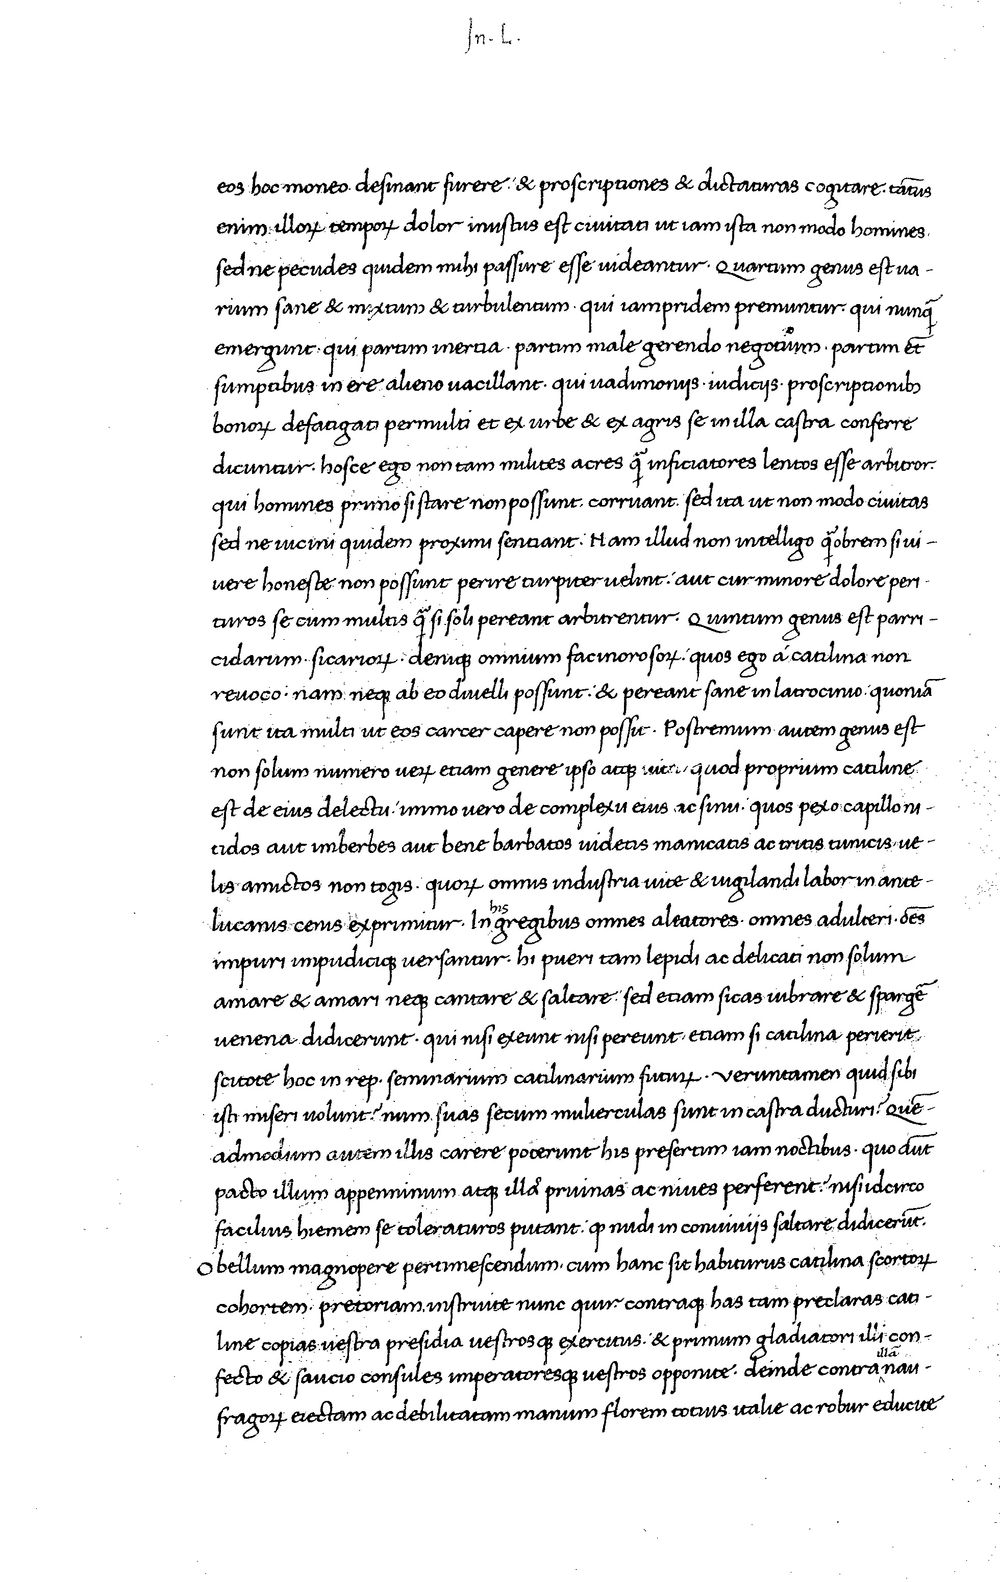 In. L.
eos hoc moneo. desinant furere: & proscriptiones & dictaturas cogitare. tātus
enim illoꝝ tempoꝝ dolor inustus est ciuitati ut iam ista non modo homines.
sed ne pecudes quidem mihi passure esse uideantur. Quartum genus est ua-
rium sane & mixtum & turbulentum. qui iampridem premuntur. qui nunꝙ̄
emergunt. qui partim inertia. partim male gerendo negotium. partim et̄
sumptibus in ere alieno uacillant. qui uadimonijs. iudicijs. proscriptionibꝫ
bonoꝝ defatigati permulti et ex urbe & ex agris se in illa castra conferre
dicuntur. hosce ego non tam milites acres ꝙ̄ inficiatores lentos esse arbitror.
qui homines primo si stare non possunt. corruant. sed ita ut non modo ciuitas
sed ne uicini quidem proximi sentiant. Nam illud non intelligo ꝙ̄obrem si ui-
uere honeste non possunt perire turpiter uelint: aut cur minore dolore peri-
turos se cum multis ꝙ̄ si soli pereant arbitrentur. Quintum genus est parri-
cidarum. sicarioꝝ. deniqꝫ omnium facinorosoꝝ: quos ego á catilina non
reuoco. nam neqꝫ ab eo diuelli possunt: & pereant sane in latrocinio: quoniā
sunt ita multi ut eos carcer capere non possit. Postremum autem genus est
non solum numero ueꝝ etiam genere ipso atqꝫ uita. quod proprium catiline
est de eius delectu: immo uero de complexu eius ac sinu. quos pexo capillo ni-
tidos aut imberbes aut bene barbatos uidetis manicatis ac tritis tunicis. ue-
lis amictos non togis. quoꝝ omnis industria uite & uigilandi labor in ante-
lucanis cenis exprimitur. In his gregibus omnes aleatores. omnes adulteri. oēs
impuri impudiciqꝫ uersantur. hi pueri tam lepidi ac delicati non solum
amare & amari neqꝫ cantare & saltare: sed etiam sicas uibrare & spargē
uenena didicerunt. qui nisi exeunt nisi pereunt. etiam si catilina perierit.
scitote hoc in rep. seminarium catilinarium futuꝝ. Veruntamen quid sibi
isti miseri uolunt? num suas secum mulierculas sunt in castra ducturi? Quē-
admodum autem illis carere poterunt his presertim iam noctibus. quo aūt
pacto illum appenninum atqꝫ illas pruinas ac niues perferent? nisi idcirco
facilius hiemem se toleraturos putant: ꝙ nudi in conuiuijs saltare didicerūt.
O bellum magnopere pertimescendum. cum hanc sit habiturus catilina scortoꝝ
cohortem. pretoriam. instruite nunc quir. contraqꝫ has tam preclaras cati-
line copias uestra presidia uestrosqꝫ exercitus. & primum gladiatori illi con-
fecto & saucio consules imperatoresqꝫ uestros opponite. deinde contra illā nau-
fragoꝝ eiectam ac debilitatam manum florem totius italie ac robur educite